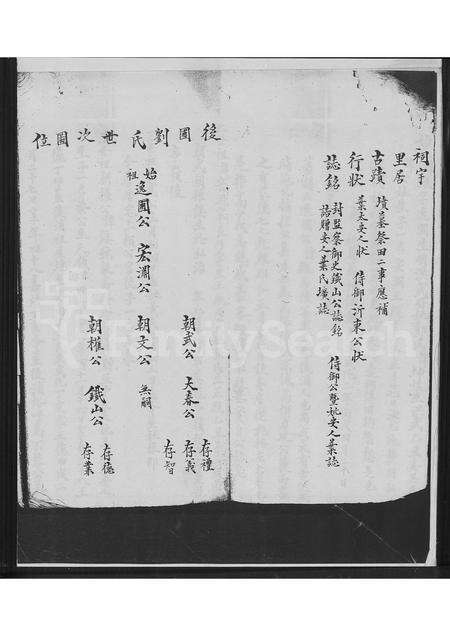 祠宇
里居
古蹟 墳墓祭田二事應補
行狀 葉太安人狀 侍御沂東公狀
誌銘 封監察御史鐵山公誌銘 侍御公暨姚安人葉誌
誥贈安人葉氏壙誌
後圍劉氏世次圖位
朝武公 大春公 存禮
存義
存智
始祖逸圃公 宏淵公 朝文公 無嗣
朝權公 鐵山公 存德
存業